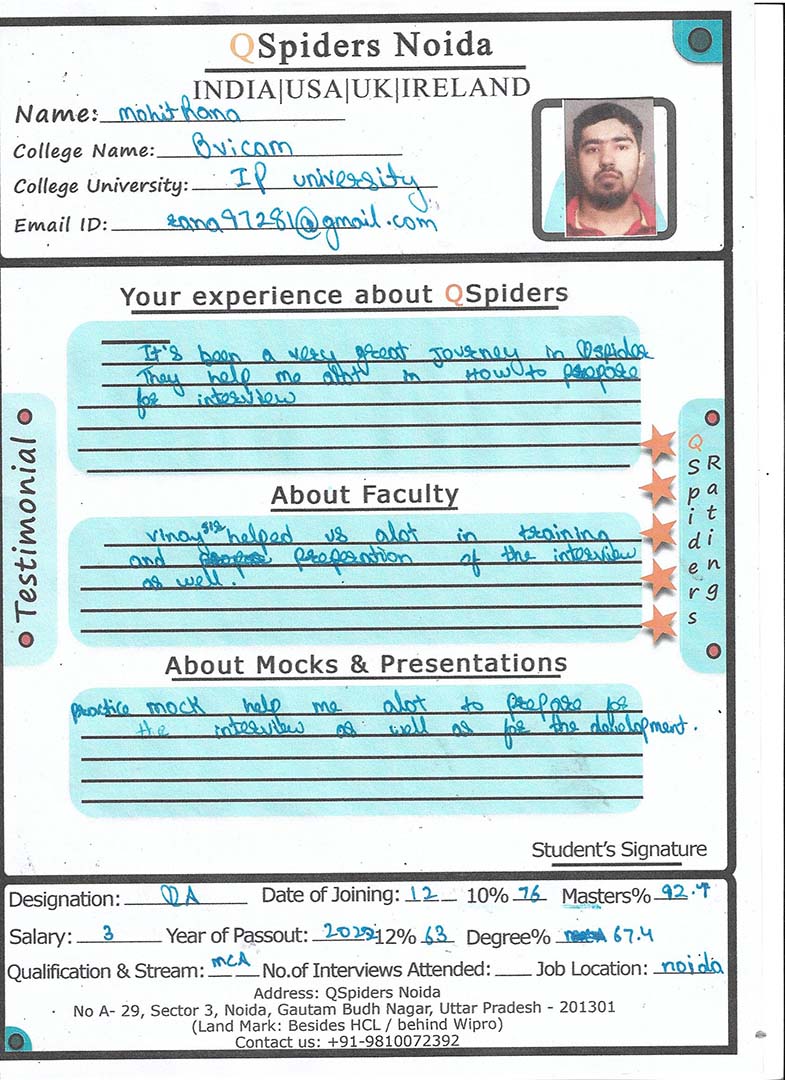 QSpiders Noida
INDIA|USA|UK|IRELAND
Name: Mohit Rana
College Name: Bvicam
College University: IP university
Email ID: rana97281@gmail.com
Your experience about QSpiders
It's been a very great Journey in Qspider
They help me alot in How to prepare
for interview
About Faculty
vinay sir helped us alot in training
and preperation of the interview
as well.
About Mocks & Presentations
practice mock help me alot to prepare for
the interview as well as for the development.
Testimonial
QSpiders
Rating
Student's Signature
Designation: QA Date of Joining: 12 10% 76 Masters% 92.4
Salary: 3 Year of Passout: 2022 12% 63 Degree% 67.4
Qualification & Stream: MCA No.of Interviews Attended: Job Location: noida
Address: QSpiders Noida
No A- 29, Sector 3, Noida, Gautam Budh Nagar, Uttar Pradesh - 201301
(Land Mark: Besides HCL / behind Wipro)
Contact us: +91-9810072392